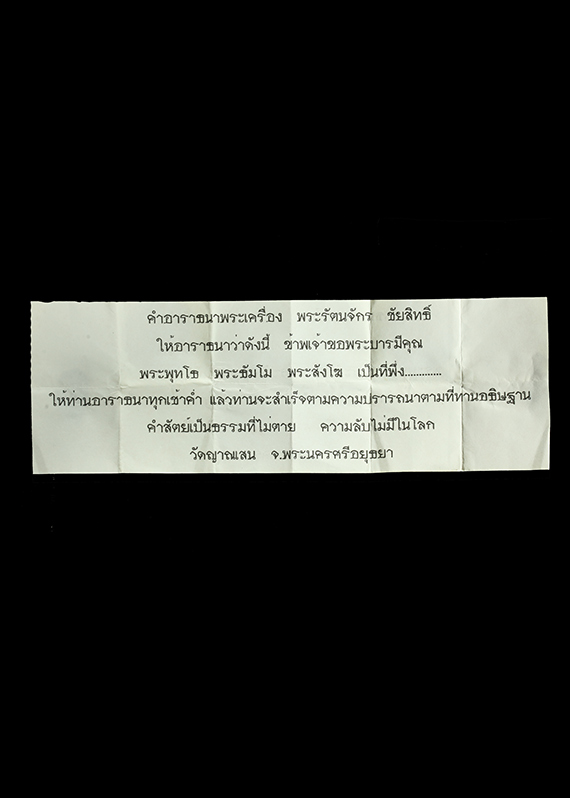 คำอาราธนาพระเครื่อง พระรัตนจักร ชัยสิทธิ์
ให้อาราธนาว่าดังนี้ ข้าพเจ้าขอพระบารมีคุณ
พระพุทโธ พระธัมโม พระสังโฆ เป็นที่พึ่ง.............
ให้ท่านอาราธนาทุกเช้าค่ำ แล้วท่านจะสำเร็จตามความปรารถนาตามที่ท่านอธิษฐาน
คำสัตย์เป็นธรรมที่ไม่ตาย ความลับไม่มีในโลก
วัดญาณเสน จ.พระนครศรีอยุธยา